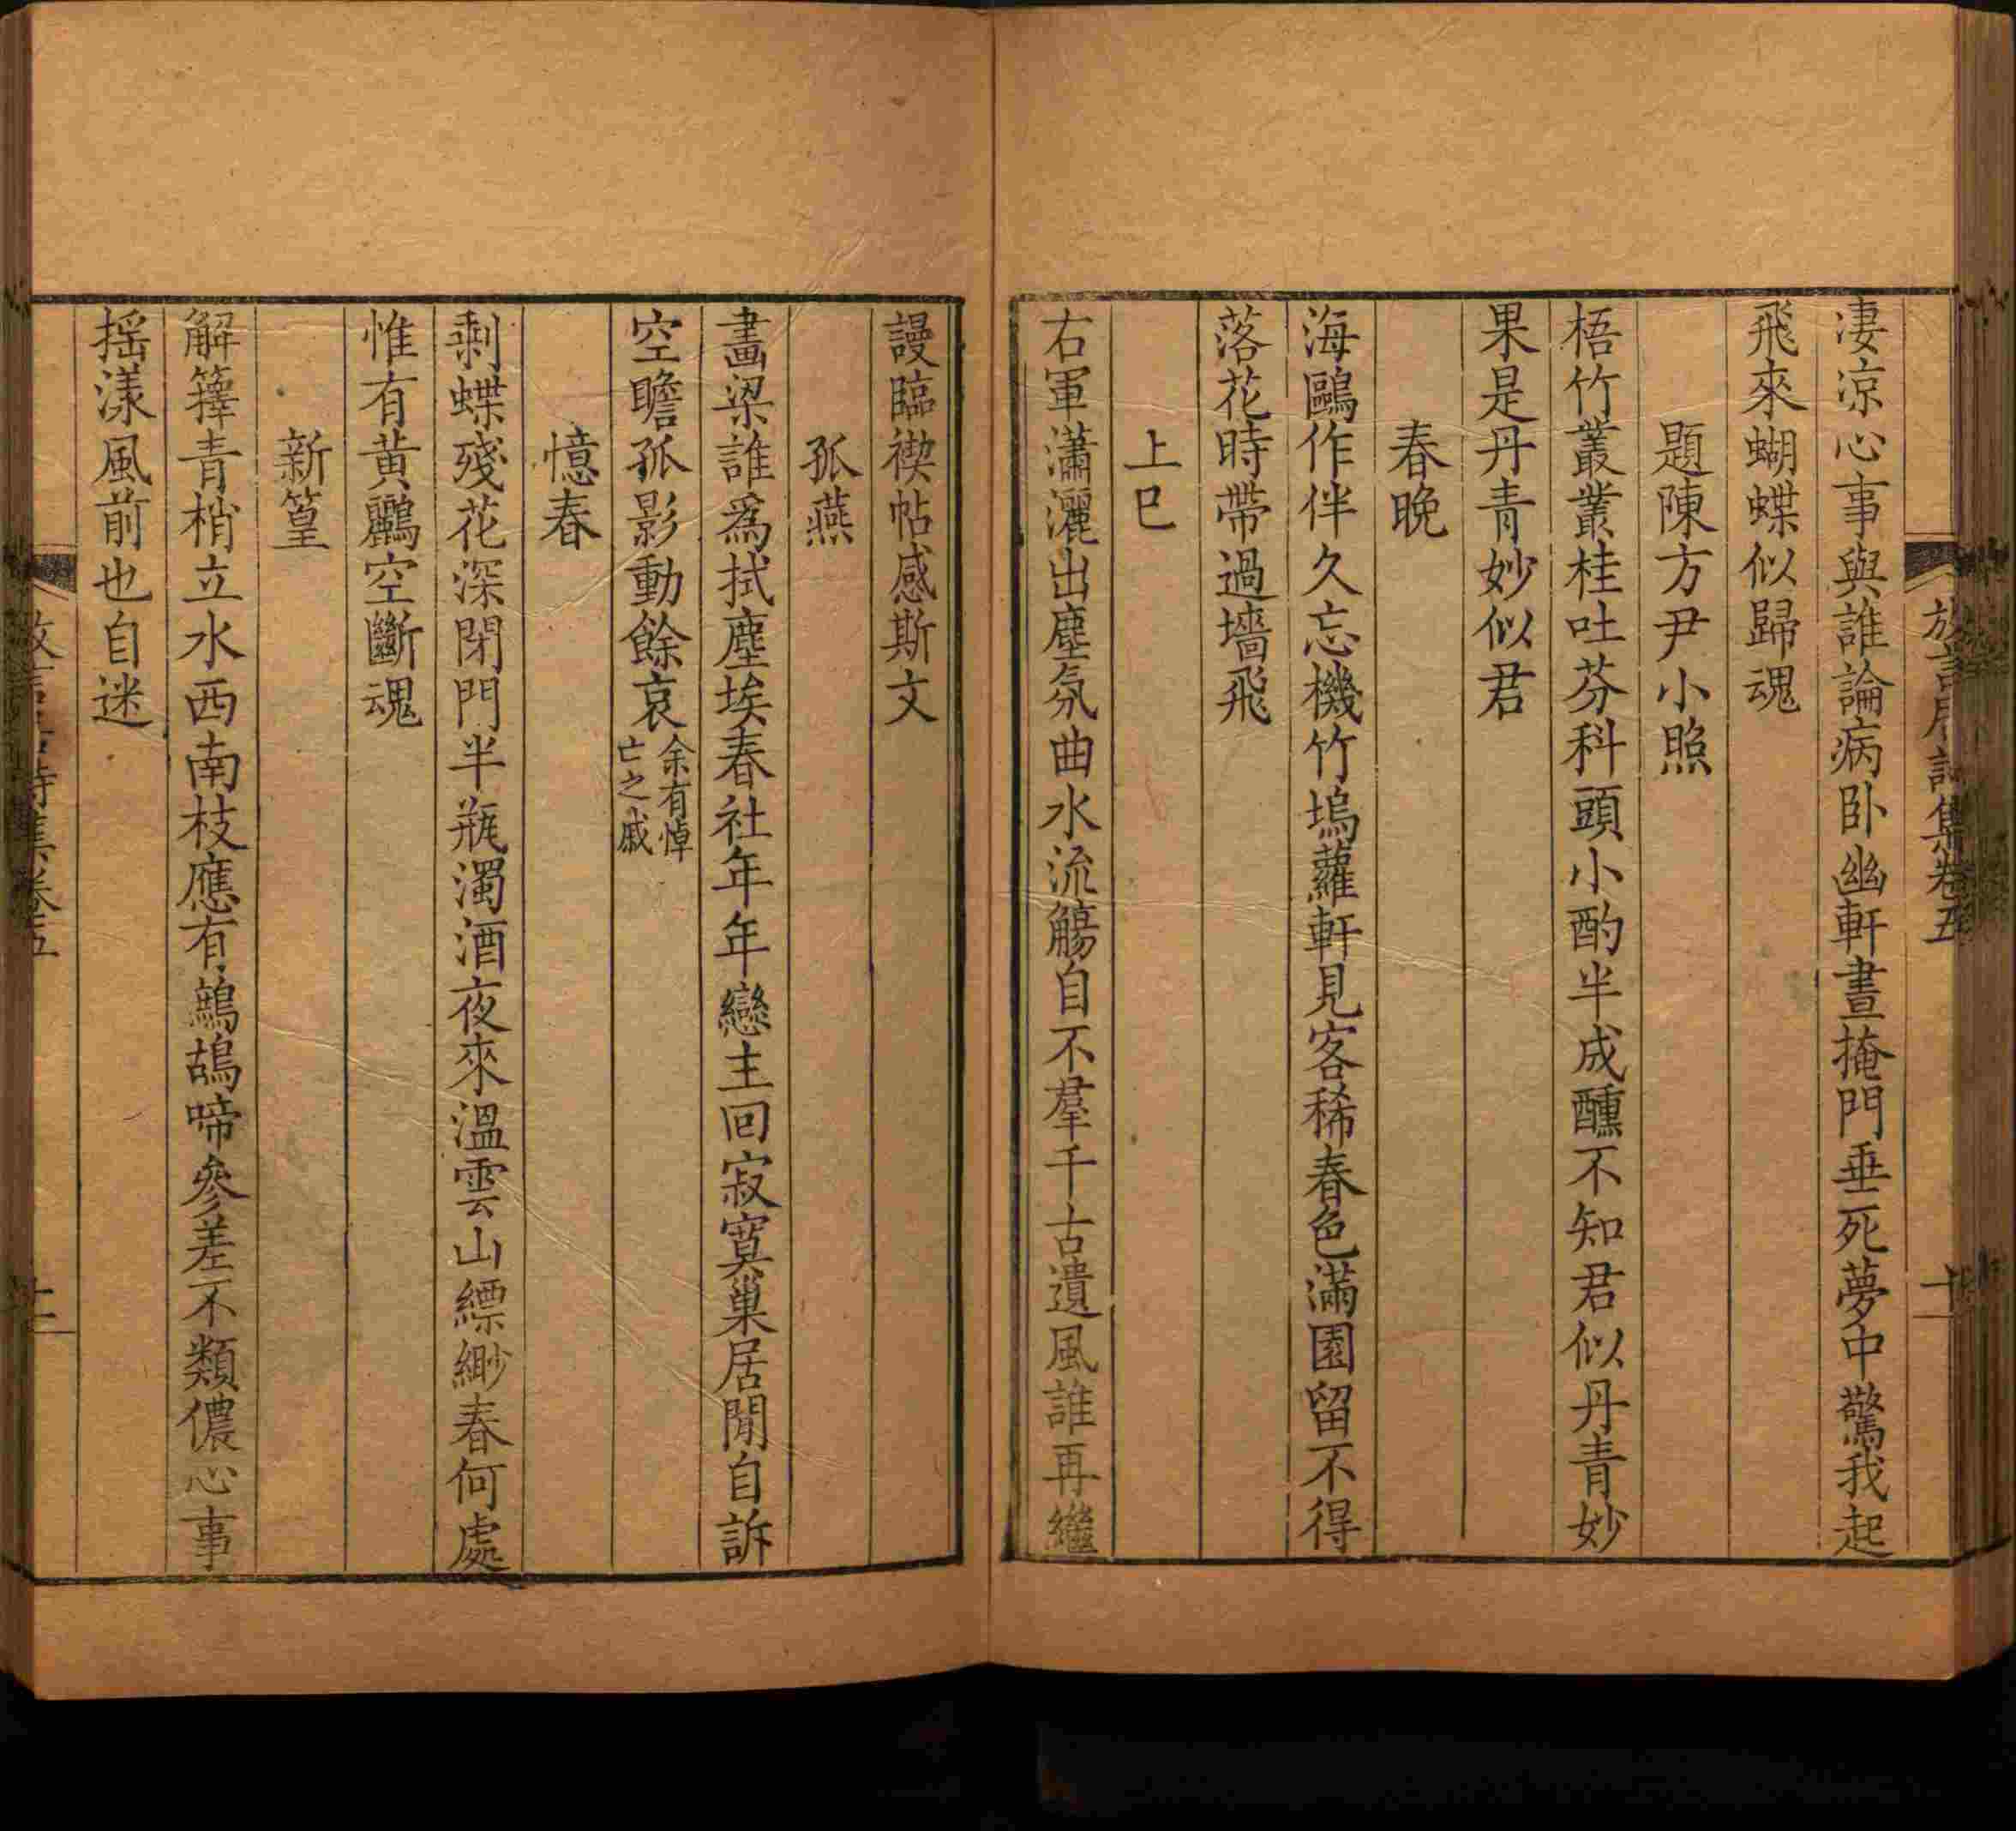 淒涼心事與誰論病卧幽軒晝掩門垂死夢中驚我起
飛來蝴蝶似歸魂
題陳方尹小照
梧竹叢叢桂吐芬科頭小酌半成醺不知君似丹青妙
果是丹青妙似君
春晚
海鷗作伴久忘機竹塢蘿軒見客稀春色滿園留不得
落花時帶過墻飛
上巳
右軍瀟灑出塵氛曲水流觴自不羣千古遺風誰再繼
謾臨禊帖感斯文
孤燕
畫梁誰爲拭塵埃春社年年戀主回寂寞巢居閒自訴
空瞻孤影動餘哀余有悼亡之戚
憶春
剩蝶殘花深閉門半瓶濁酒夜來溫雲山縹緲春何處
惟有黄鸝空斷魂
新篁
解籜青梢立水西南枝應有鷓鴣啼參差不類儂心事
摇漾風前也自迷
詩集卷五